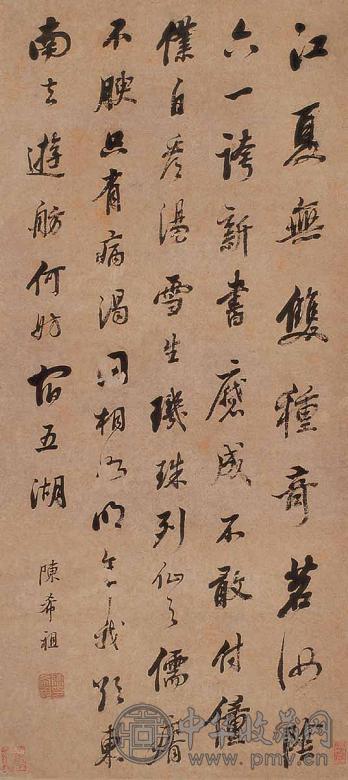 江夏無雙種奇茗汝陰
六一誇新書磨成不敢付僮
僕自看湯雪生璣珠列仙之儒瘠
不腴只有病渴同相如明年我欲東
南去遊舫何妨宿五湖
陳希祖
中华收藏网
www.pmv.cn